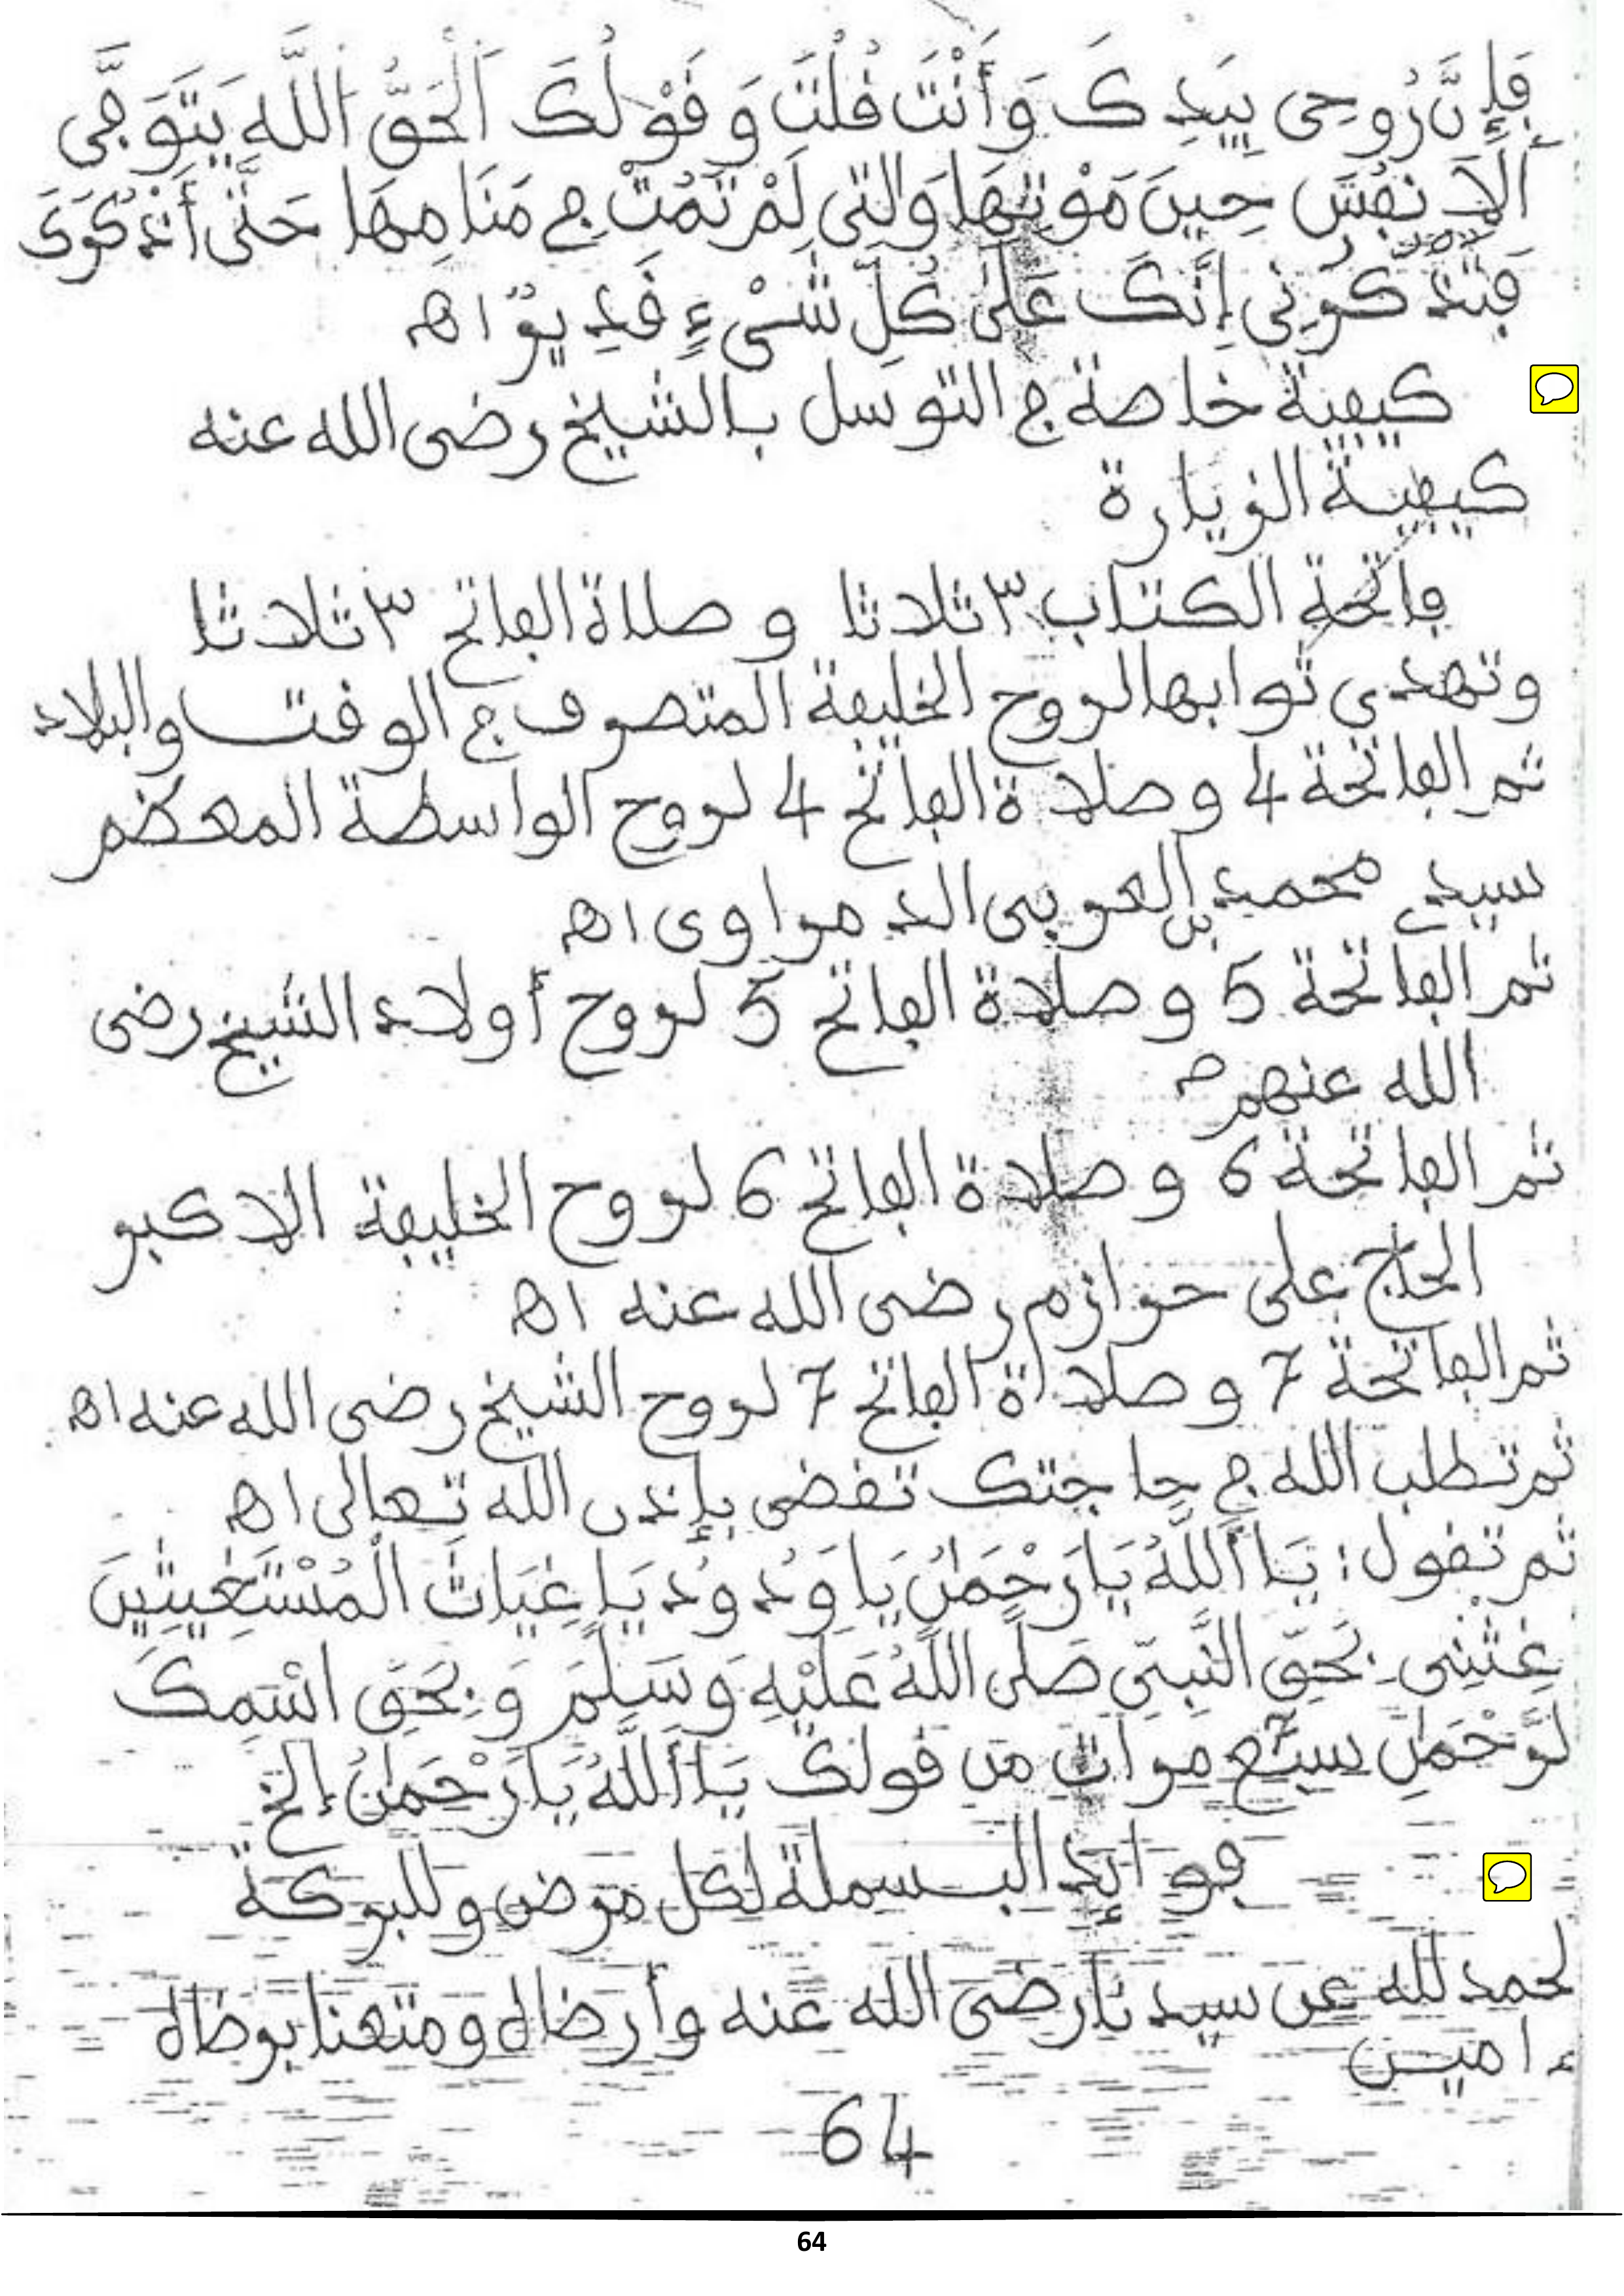 فَإِنَّ رُوحِى بِيَدِكَ وَأَنْتَ قُلْتَ وَقَوْلُكَ اَلْحَقُّ اَللَّهُ يَتَوَفَّى
اَلْأَنفُسَ حِينَ مَوْتِهَا وَالتِى لَمْ تَمُتْ فِى مَنَامِهَا حَتَّى أَذْكُرَكَ
فَتَذْكُرَنِى إِنَّكَ عَلَى كُلِّ شَىْءٍ قَدِيرٌ اهـ
كيفية خاصة فى التوسل بالشيخ رضى الله عنه
كيفية الزيارة
فاتحة الكتاب ٣ ثلاثا وصلاة الفاتح ٣ ثلاثا
وتهدى ثوابها لروح الخليفة المتصرف فى الوقت والبلاد
ثم الفاتحة 4 وصلاة الفاتح 4 لروح الواسطة المعظم
سيدي محمد بن العربى الدمراوى اهـ
ثم الفاتحة 5 وصلاة الفاتح 5 لروح أولاد الشيخ رضى
الله عنهم
ثم الفاتحة 6 وصلاة الفاتح 6 لروح الخليفة الاكبر
الحاج على حرازم رضى الله عنه اهـ
ثم الفاتحة 7 وصلااة الفاتح 7 لروح الشيخ رضى الله عنه اهـ
ثم تطلب الله فى حاجتك تقضى بإذن الله تعالى اهـ
ثم تقول: يَا أَللَّهُ يَا رَحْمَانُ يَا وَدُودُ يَا غِيَاثَ الْمُسْتَغِيثِينَ
غِثْنِى بِحَقِّ النَّبِىِّ صَلَّى اللَّهُ عَلَيْهِ وَسَلَّمَ وَبِحَقِّ اسْمِكَ
لرَّحْمَانِ سبْع 7 مرات من قولك يَا أَللَّهُ يَا رَحْمَانُ إلخ
فوائد البسملة لكل مرض وللبركة
لحمد لله عن سيدنا رضى الله عنه وأرضاه ومتعنا برضاه
ءامين
64
64